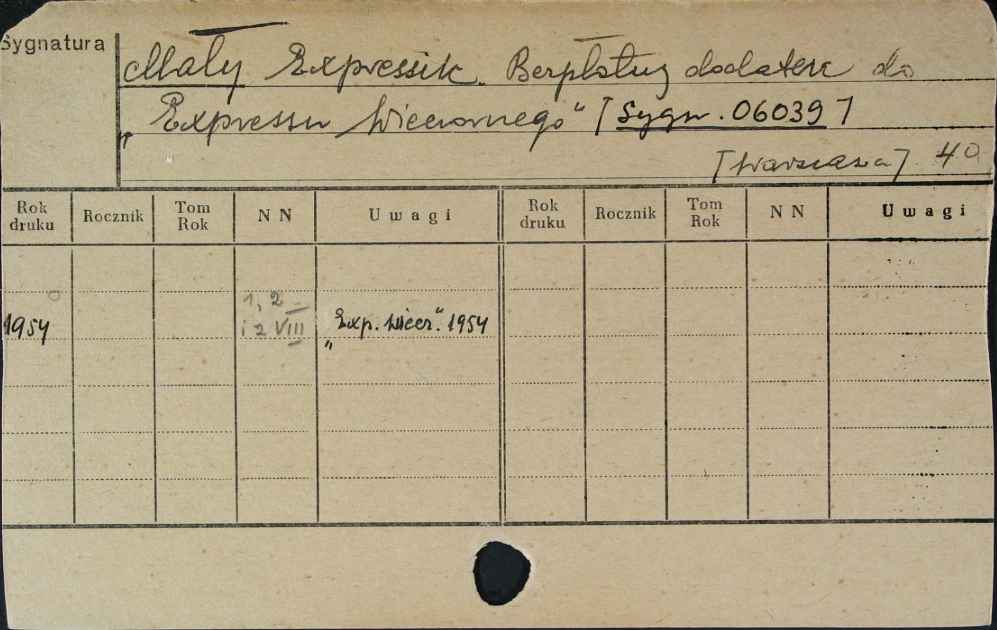 Sygnatura
Mały Expressik. Bezpłatny dodatek do
„Expressu Wieczornego" [Sygn. 06039]
[Warszawa] 4°
Rok druku Rocznik Tom Rok N N Uwagi Rok druku Rocznik Tom Rok N N Uwagi
1, 2
1954 i 2 VIII „Exp. Wiecz". 1954